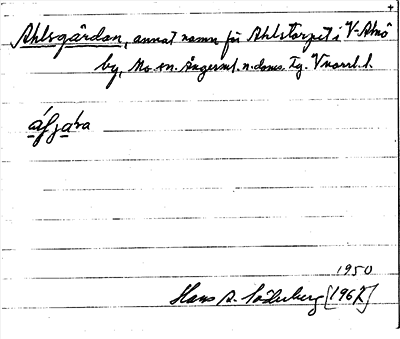 Ahlsgården, annat namn för Ahlstorpet i V-Alnö
by, Mo sn. Ångerml. n. doms. Tg. Vnorrl. l.
1950
Hans A. Söderberg [1967]